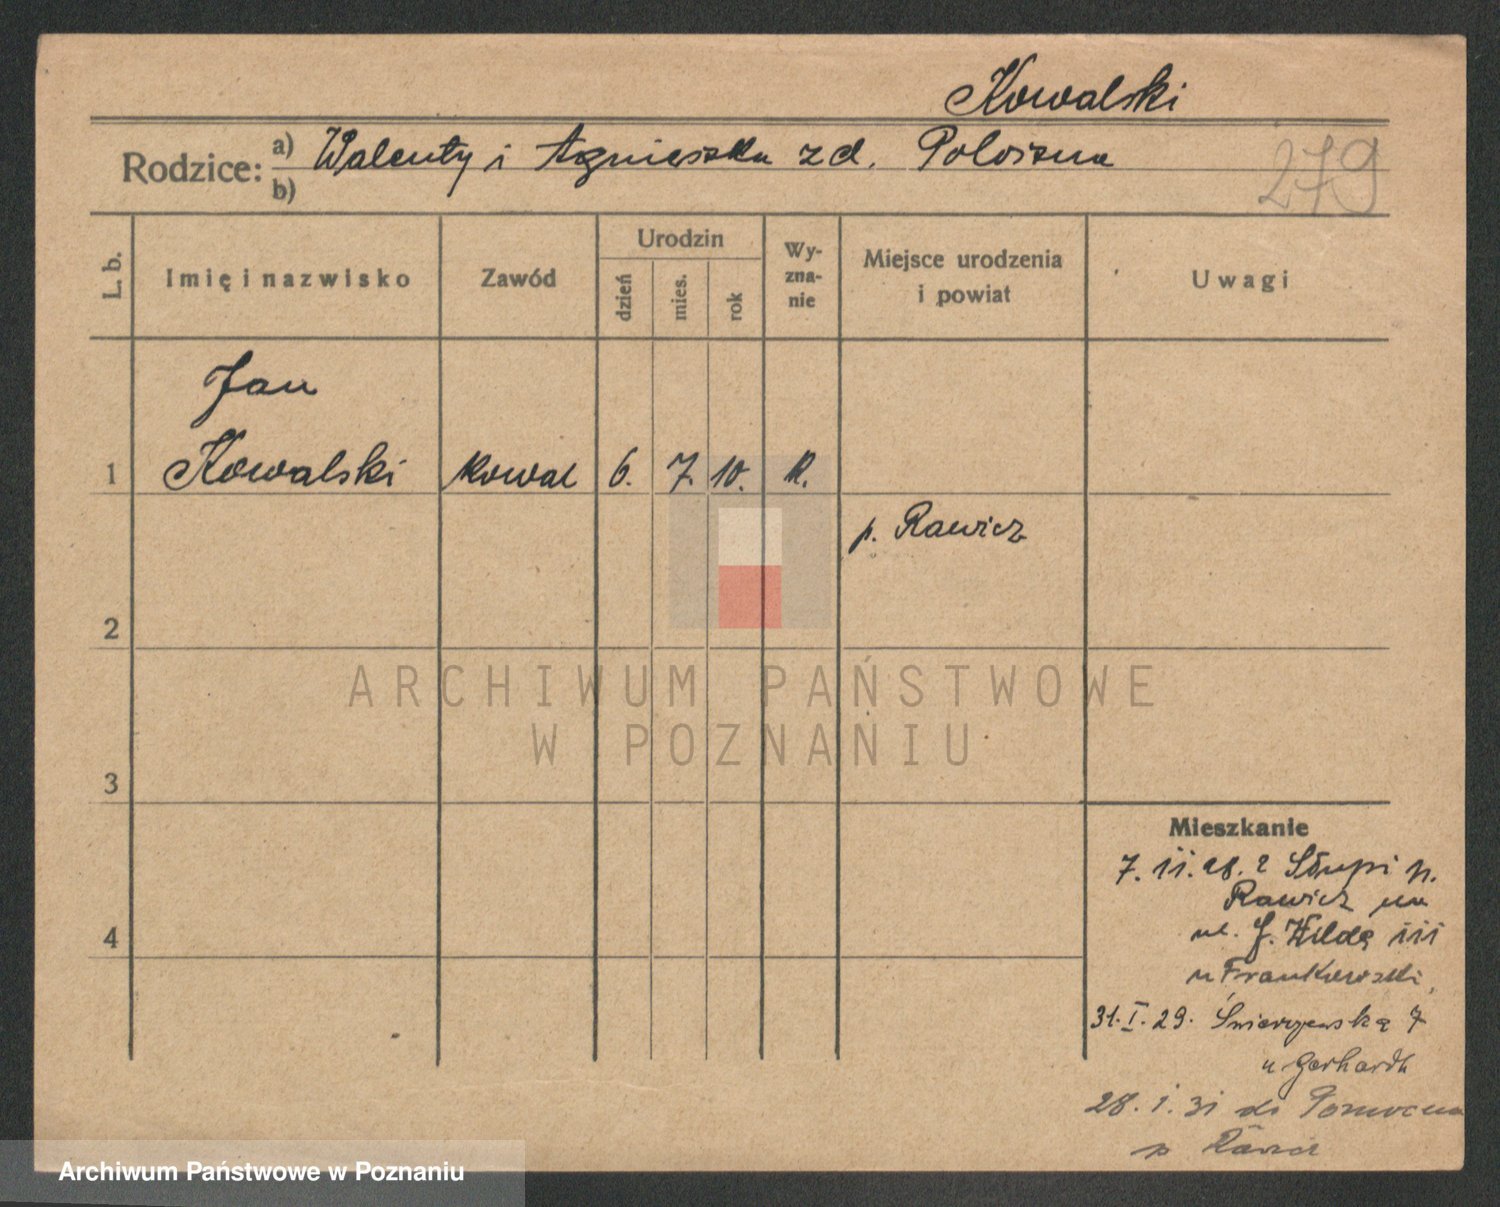 Kowalski
Rodzice: a) Walenty i Agnieszka z d.
b)
279
L. b.
Imię i nazwisko
Zawód
Urodzin
dzień
mies.
rok
Wy-
zna-
nie
Miejsce urodzenia
i powiat
Uwagi
Jan
1 Kowalski kowal 6. 7. 10. k.
p. Rawicz
2
3
4
Mieszkanie
7. 11. 28. z Słupi p.
Rawicz na
ul. G. Wildę 111
u
31. I. 29. 7
u Gerhardt
28. 1. 31 do
p
ARCHIWUM PAŃSTWOWE
W POZNANIU
Archiwum Państwowe w Poznaniu